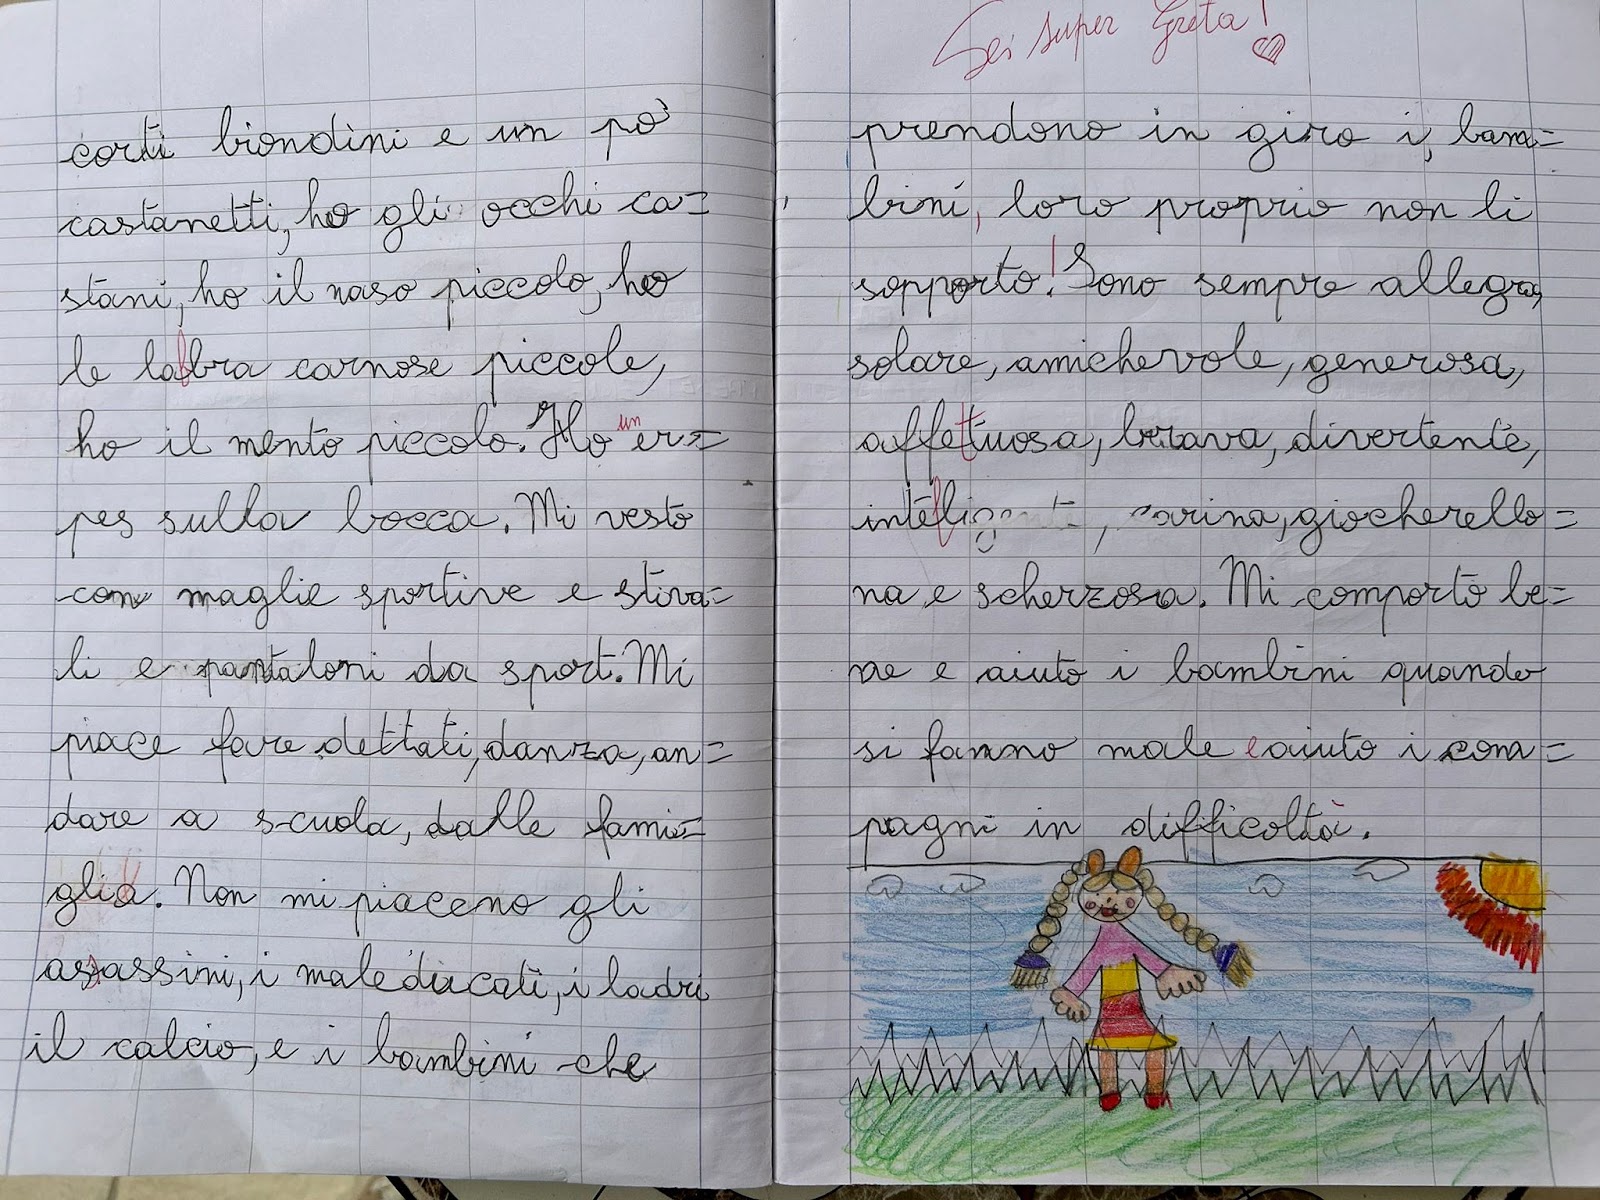 corti biondini e un po'
castanetti, ho gli occhi ca=
stani, ho il naso piccolo, ho
le labbra carnose piccole,
ho il mento piccolo. Ho un er=
pes sulla bocca. Mi vesto
con maglie sportive e stiva=
li e pantaloni da sport. Mi
piace fare dettati, danza, an=
dare a scuola, dalle fami=
glia. Non mi piaceno gli
assassini, i maleducati, i ladri
il calcio, e i bambini che
Sei super Greta!
prendono in giro i, bam=
bini, loro proprio non li
sopporto! Sono sempre allegra,
solare, amichevole, generosa,
affettuosa, brava, divertente,
intelligente, carina, giocherello=
na e scherzosa. Mi comporto be=
ne e aiuto i bambini quando
si fanno male e aiuto i com=
pagni in difficoltà.